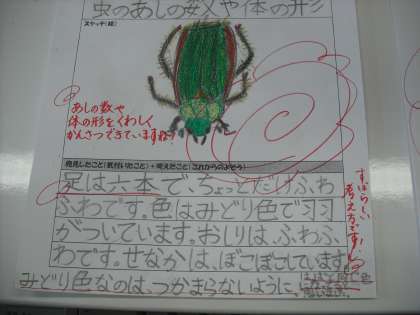 虫のあしの数や体の形
スケッチ(絵)
あしの数や
体の形をくわしく
かんさつできていますね。
発見したこと(気付いたこと)+考えたこと(これからのよそう)
足は六本で、ちょっとだけふわ
ふわです。色はみどり色で羽
がついています。おしりは、ふわふ
わです。せなかは、ぼこぼこしています。
みどり色なのは、つかまらないように
はっぱと同じ色
すばらしい
考え方です!